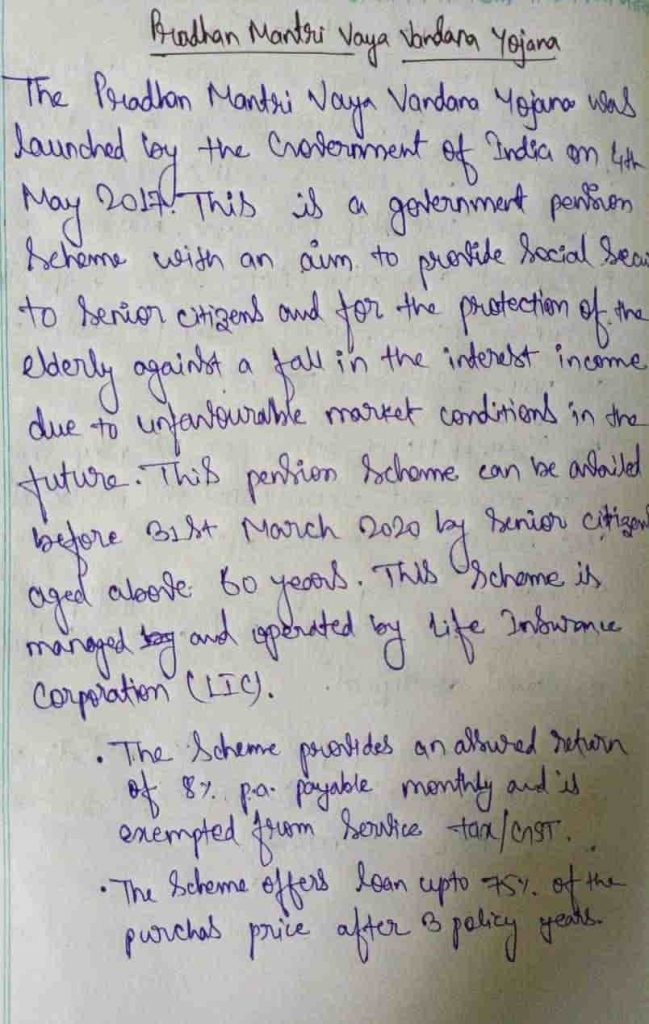 Pradhan Mantri Vaya Vandana Yojana
The Pradhan Mantri Vaya Vandana Yojana was
launched by the Government of India on 4th
May 2017. This is a government pension
scheme with an aim to provide Social Secu
to senior citizens and for the protection of the
elderly against a fall in the interest income
due to unfavourable market conditions in the
future. This pension scheme can be availed
before 31st March 2020 by senior citizen
aged above 60 years. This scheme is
managed by and operated by Life Insurance
Corporation (LIC).
• The Scheme provides an assured return
of 8% p.a. payable monthly and is
exempted from Service tax/GST.
• The Scheme offers loan upto 75% of the
purchas price after 3 policy years.